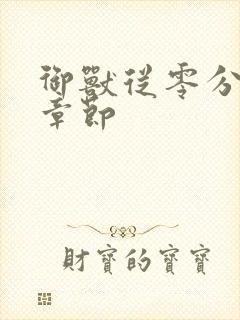 御獸從零分
章節
財寶的寶寶